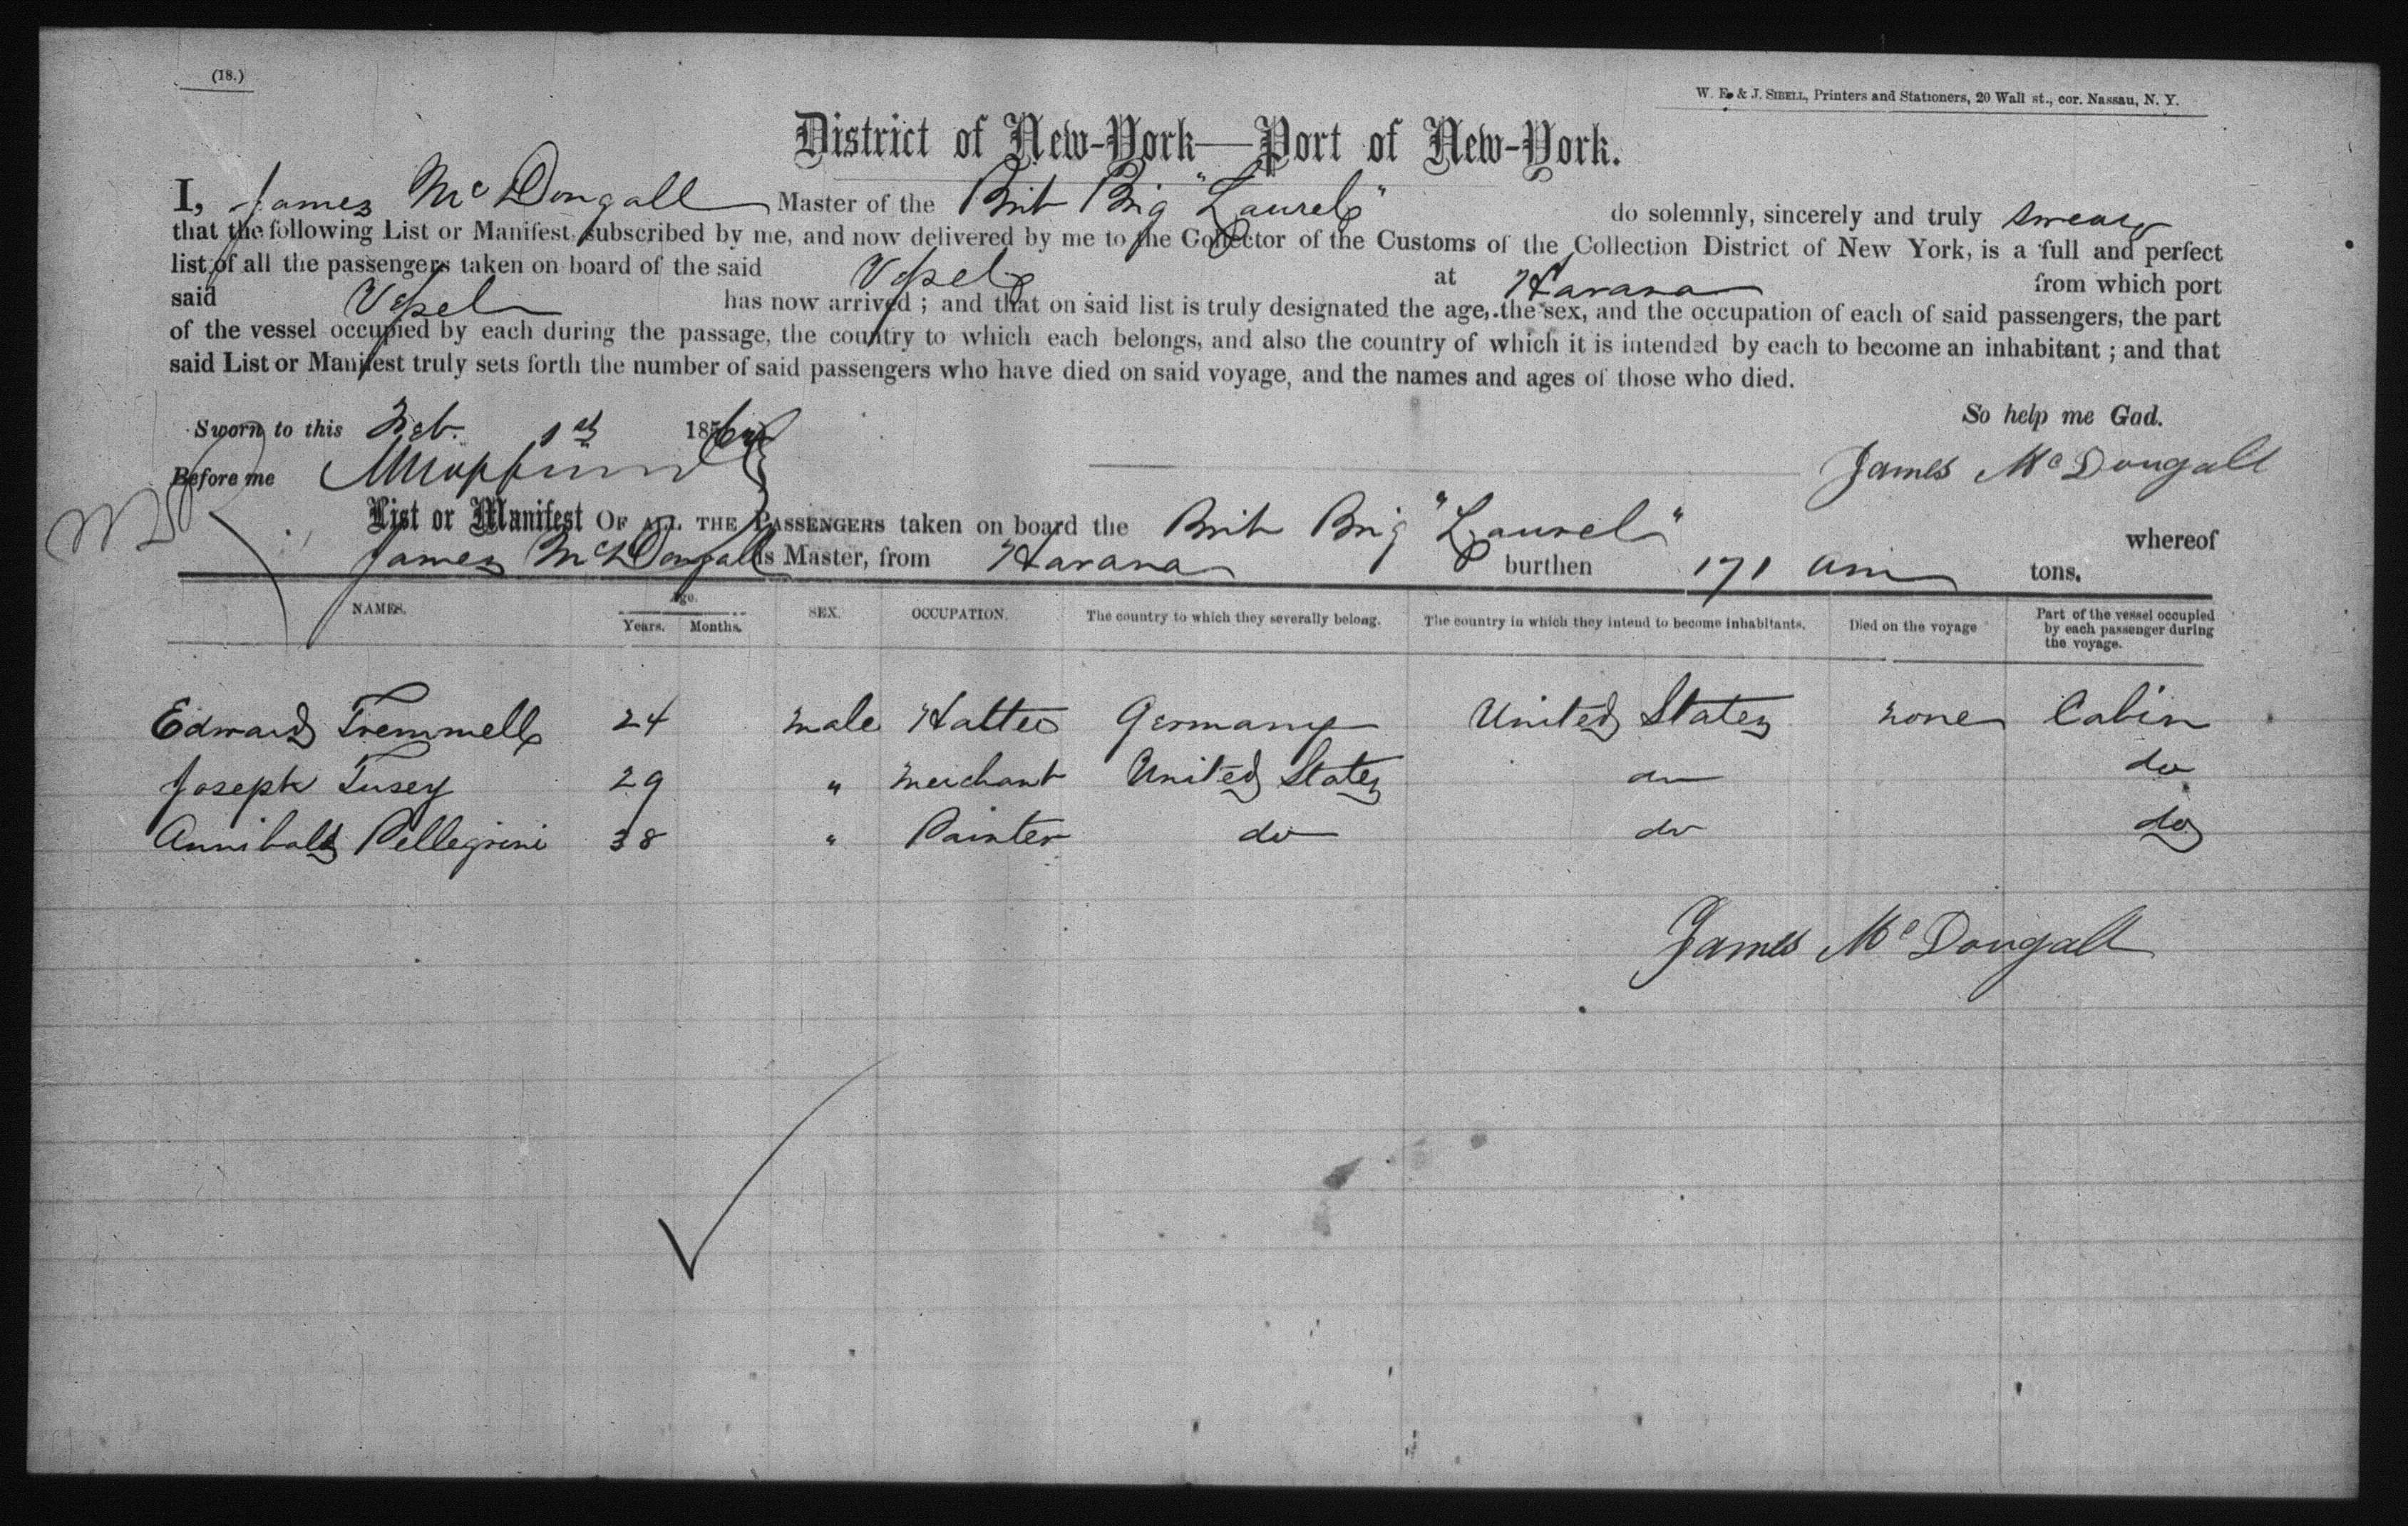 (18.)
W. E. & J. SIBELL, Printers and Stationers, 20 Wall st., cor. Nassau, N. Y.
District of New-York—Port of New-York.
I, James McDougall Master of the Brit Brig "Laurel" do solemnly, sincerely and truly swear
that the following List or Manifest, subscribed by me, and now delivered by me to the Collector of the Customs of the Collection District of New York, is a full and perfect
list of all the passengers taken on board of the said Vessel at Havana from which port
said Vessel has now arrived ; and that on said list is truly designated the age, the sex, and the occupation of each of said passengers, the part
of the vessel occupied by each during the passage, the country to which each belongs, and also the country of which it is intended by each to become an inhabitant ; and that
said List or Manifest truly sets forth the number of said passengers who have died on said voyage, and the names and ages of those who died.
So help me God.
Sworn to this Feb. 1st 186
Before me
James McDougall
List or Manifest OF ALL THE PASSENGERS taken on board the Brit Brig "Laurel" whereof
James McDougall is Master, from Havana burthen 171 tons.
NAMES. Age. Years. Months. SEX. OCCUPATION. The country to which they severally belong. The country in which they intend to become inhabitants. Died on the voyage Part of the vessel occupied by each passenger during the voyage.
Edward Tremmell 24 male Hatter Germany United States none Cabin
Joseph Tusey 29 " merchant United States do do
Annibald Pellegrini 38 " Painter do do do
James McDougall